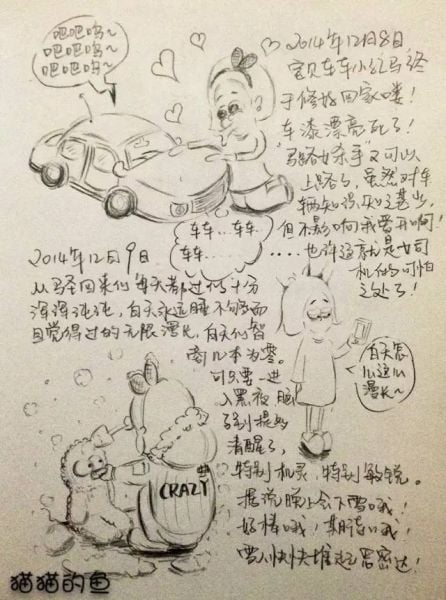 吧吧呜~
吧吧呜~
吧吧呜~
2014年12月8日
宝贝车车小红马终
于修好回家喽！
车漆漂亮死了！
"马路女杀手"又可以
上路了，虽然对车
辆知识知之甚少，
但不影响我爱开啊！
也许这就是女司
机的可怕
之处了！
车车...车车
车车......
2014年12月9日
从 回来们每天都过的十分
浑浑沌沌，白天永远睡不够而
且觉得过的无限漫长，白天们智
商几本为零。
可只要一进
入黑夜 脑
子 特好
清醒了，
特别机灵，特别敏锐。
据说晚上会下雪哦！
好棒哦，期待哦！
雪人快快堆起 密达！
白天怎
么这么
漫长~
CRAZY
猫猫的鱼